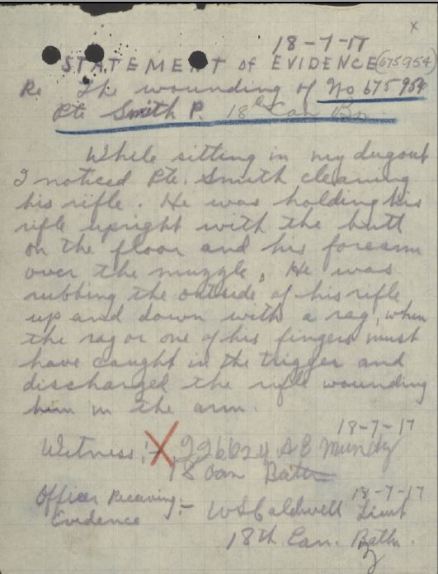 x
18-7-17
STATEMENT of EVIDENCE (675954)
Re The wounding of No 675954
Pte Smith P. 18th Can Bn
While sitting in my dugout
I noticed Pte. Smith cleaning
his rifle. He was holding his
rifle upright with the butt
on the floor and his forearm
over the muzzle, He was
rubbing the outside of his rifle
up and down with a rag, when
the rag or one of his fingers must
have caught in the trigger and
discharged the rifle wounding
him in the arm.
18-7-17
Witness:- X 226624 A B Mundy
18 Can Battn
Officer Receiving:- W S Caldwell Lieut 18-7-17
Evidence
18th Can. Battn.